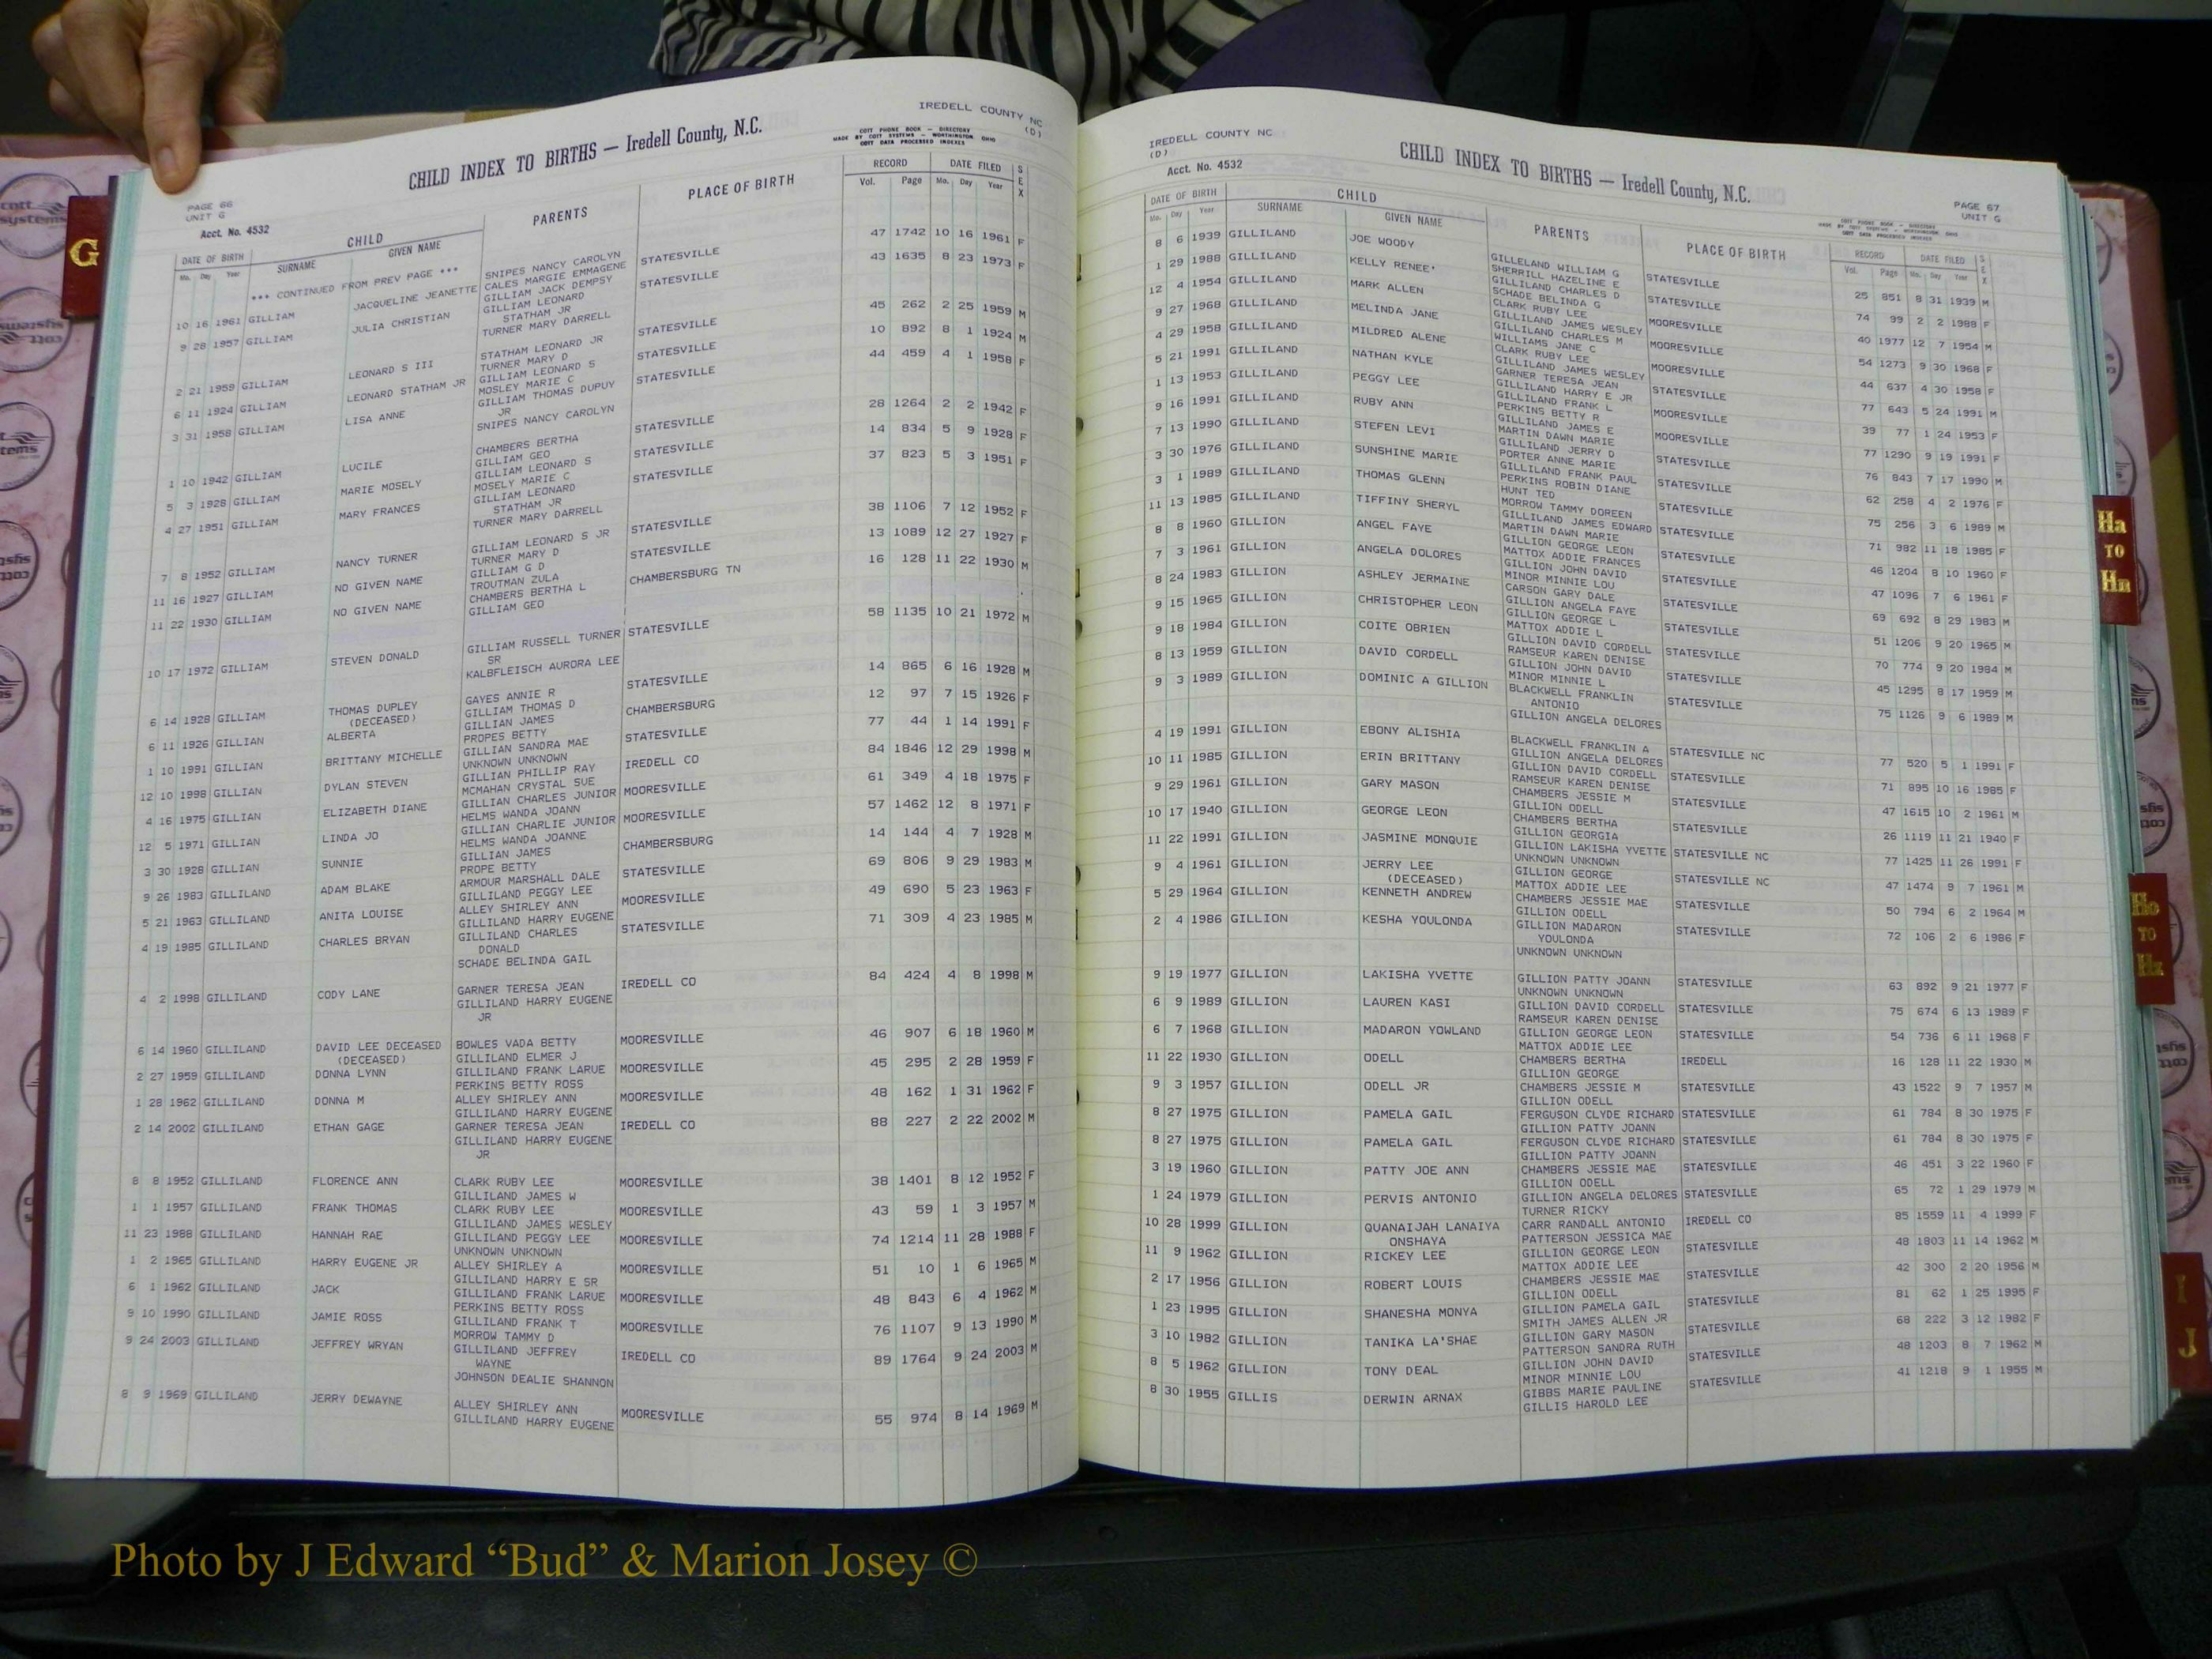 IREDELL COUNTY NC
(D)
CHILD INDEX TO BIRTHS — Iredell County, N.C.
COTT PHONE BOOK — DIRECTORY
MADE BY COTT SYSTEMS — WORTHINGTON, OHIO
COTT DATA PROCESSED INDEXES
PAGE 66
UNIT G
Acct. No. 4532
CHILD PARENTS PLACE OF BIRTH RECORD DATE FILED SEX
DATE OF BIRTH SURNAME GIVEN NAME Vol. Page Mo. Day Year
Mo. Day Year
*** CONTINUED FROM PREV PAGE *** SNIPES NANCY CAROLYN
10 16 1961 GILLIAM JACQUELINE JEANETTE CALES MARGIE EMMAGENE STATESVILLE 47 1742 10 16 1961 F
GILLIAM JACK DEMPSY
9 28 1957 GILLIAM JULIA CHRISTIAN GILLIAM LEONARD STATESVILLE 43 1635 8 23 1973 F
STATHAM JR
TURNER MARY DARRELL
2 21 1959 GILLIAM LEONARD S III STATHAM LEONARD JR STATESVILLE 45 262 2 25 1959 M
TURNER MARY D
6 11 1924 GILLIAM LEONARD STATHAM JR GILLIAM LEONARD S STATESVILLE 10 892 8 1 1924 M
MOSLEY MARIE C
3 31 1958 GILLIAM LISA ANNE GILLIAM THOMAS DUPUY STATESVILLE 44 459 4 1 1958 F
JR
SNIPES NANCY CAROLYN
1 10 1942 GILLIAM LUCILE CHAMBERS BERTHA STATESVILLE 28 1264 2 2 1942 F
GILLIAM GEO
5 3 1928 GILLIAM MARIE MOSELY GILLIAM LEONARD S STATESVILLE 14 834 5 9 1928 F
MOSELY MARIE C
4 27 1951 GILLIAM MARY FRANCES GILLIAM LEONARD STATESVILLE 37 823 5 3 1951 F
STATHAM JR
TURNER MARY DARRELL
7 8 1952 GILLIAM NANCY TURNER GILLIAM LEONARD S JR STATESVILLE 38 1106 7 12 1952 F
TURNER MARY D
11 16 1927 GILLIAM NO GIVEN NAME GILLIAM G D STATESVILLE 13 1089 12 27 1927 F
TROUTMAN ZULA
11 22 1930 GILLIAM NO GIVEN NAME CHAMBERS BERTHA L CHAMBERSBURG TN 16 128 11 22 1930 M
GILLIAM GEO
10 17 1972 GILLIAM STEVEN DONALD GILLIAM RUSSELL TURNER STATESVILLE 58 1135 10 21 1972 M
SR
KALBFLEISCH AURORA LEE
6 14 1928 GILLIAM THOMAS DUPLEY GAYES ANNIE R STATESVILLE 14 865 6 16 1928 M
(DECEASED) GILLIAM THOMAS D
6 11 1926 GILLIAN ALBERTA GILLIAN JAMES CHAMBERSBURG 12 97 7 15 1926 F
PROPES BETTY
1 10 1991 GILLIAN BRITTANY MICHELLE GILLIAN SANDRA MAE STATESVILLE 77 44 1 14 1991 F
UNKNOWN UNKNOWN
12 10 1998 GILLIAN DYLAN STEVEN GILLIAN PHILLIP RAY IREDELL CO 84 1846 12 29 1998 M
MCMAHAN CRYSTAL SUE
4 16 1975 GILLIAN ELIZABETH DIANE GILLIAN CHARLES JUNIOR MOORESVILLE 61 349 4 18 1975 F
HELMS WANDA JOANN
12 5 1971 GILLIAN LINDA JO GILLIAN CHARLIE JUNIOR MOORESVILLE 57 1462 12 8 1971 F
HELMS WANDA JOANNE
3 30 1928 GILLIAN SUNNIE GILLIAN JAMES CHAMBERSBURG 14 144 4 7 1928 M
PROPE BETTY
9 26 1983 GILLILAND ADAM BLAKE ARMOUR MARSHALL DALE STATESVILLE 69 806 9 29 1983 M
GILLILAND PEGGY LEE
5 21 1963 GILLILAND ANITA LOUISE ALLEY SHIRLEY ANN MOORESVILLE 49 690 5 23 1963 F
GILLILAND HARRY EUGENE
4 19 1985 GILLILAND CHARLES BRYAN GILLILAND CHARLES STATESVILLE 71 309 4 23 1985 M
DONALD
SCHADE BELINDA GAIL
4 2 1998 GILLILAND CODY LANE GARNER TERESA JEAN IREDELL CO 84 424 4 8 1998 M
GILLILAND HARRY EUGENE
JR
6 14 1960 GILLILAND DAVID LEE DECEASED BOWLES VADA BETTY MOORESVILLE 46 907 6 18 1960 M
(DECEASED) GILLILAND ELMER J
2 27 1959 GILLILAND DONNA LYNN GILLILAND FRANK LARUE MOORESVILLE 45 295 2 28 1959 F
PERKINS BETTY ROSS
1 28 1962 GILLILAND DONNA M ALLEY SHIRLEY ANN MOORESVILLE 48 162 1 31 1962 F
GILLILAND HARRY EUGENE
2 14 2002 GILLILAND ETHAN GAGE GARNER TERESA JEAN IREDELL CO 88 227 2 22 2002 M
GILLILAND HARRY EUGENE
JR
8 8 1952 GILLILAND FLORENCE ANN CLARK RUBY LEE MOORESVILLE 38 1401 8 12 1952 F
GILLILAND JAMES W
1 1 1957 GILLILAND FRANK THOMAS CLARK RUBY LEE MOORESVILLE 43 59 1 3 1957 M
GILLILAND JAMES WESLEY
11 23 1988 GILLILAND HANNAH RAE GILLILAND PEGGY LEE MOORESVILLE 74 1214 11 28 1988 F
UNKNOWN UNKNOWN
1 2 1965 GILLILAND HARRY EUGENE JR ALLEY SHIRLEY A MOORESVILLE 51 10 1 6 1965 M
GILLILAND HARRY E SR
6 1 1962 GILLILAND JACK GILLILAND FRANK LARUE MOORESVILLE 48 843 6 4 1962 M
PERKINS BETTY ROSS
9 10 1990 GILLILAND JAMIE ROSS GILLILAND FRANK T MOORESVILLE 76 1107 9 13 1990 M
MORROW TAMMY D
9 24 2003 GILLILAND JEFFREY WRYAN GILLILAND JEFFREY IREDELL CO 89 1764 9 24 2003 M
WAYNE
JOHNSON DEALIE SHANNON
8 9 1969 GILLILAND JERRY DEWAYNE ALLEY SHIRLEY ANN MOORESVILLE 55 974 8 14 1969 M
GILLILAND HARRY EUGENE
IREDELL COUNTY NC
(D)
Acct. No. 4532
CHILD INDEX TO BIRTHS — Iredell County, N.C.
PAGE 67
UNIT G
COTT PHONE BOOK — DIRECTORY
MADE BY COTT SYSTEMS — WORTHINGTON, OHIO
COTT DATA PROCESSED INDEXES
DATE OF BIRTH CHILD PARENTS PLACE OF BIRTH RECORD DATE FILED SEX
Mo. Day Year SURNAME GIVEN NAME Vol. Page Mo. Day Year
8 6 1939 GILLILAND JOE WOODY GILLELAND WILLIAM G STATESVILLE 25 851 8 31 1939 M
SHERRILL HAZELINE E
1 29 1988 GILLILAND KELLY RENEE' GILLILAND CHARLES D STATESVILLE 74 99 2 2 1988 F
SCHADE BELINDA G
12 4 1954 GILLILAND MARK ALLEN CLARK RUBY LEE MOORESVILLE 40 1977 12 7 1954 M
GILLILAND JAMES WESLEY
9 27 1968 GILLILAND MELINDA JANE GILLILAND CHARLES M MOORESVILLE 54 1273 9 30 1968 F
WILLIAMS JANE C
4 29 1958 GILLILAND MILDRED ALENE CLARK RUBY LEE MOORESVILLE 44 637 4 30 1958 F
GILLILAND JAMES WESLEY
5 21 1991 GILLILAND NATHAN KYLE GARNER TERESA JEAN STATESVILLE 77 643 5 24 1991 M
GILLILAND HARRY E JR
1 13 1953 GILLILAND PEGGY LEE GILLILAND FRANK L MOORESVILLE 39 77 1 24 1953 F
PERKINS BETTY R
9 16 1991 GILLILAND RUBY ANN GILLILAND JAMES E MOORESVILLE 77 1290 9 19 1991 F
MARTIN DAWN MARIE
7 13 1990 GILLILAND STEFEN LEVI GILLILAND JERRY D STATESVILLE 76 843 7 17 1990 M
PORTER ANNE MARIE
3 30 1976 GILLILAND SUNSHINE MARIE GILLILAND FRANK PAUL STATESVILLE 62 258 4 2 1976 F
PERKINS ROBIN DIANE
3 1 1989 GILLILAND THOMAS GLENN HUNT TED STATESVILLE 75 256 3 6 1989 M
MORROW TAMMY DOREEN
11 13 1985 GILLILAND TIFFINY SHERYL GILLILAND JAMES EDWARD STATESVILLE 71 982 11 18 1985 F
MARTIN DAWN MARIE
8 8 1960 GILLION ANGEL FAYE GILLION GEORGE LEON STATESVILLE 46 1204 8 10 1960 F
MATTOX ADDIE FRANCES
7 3 1961 GILLION ANGELA DOLORES GILLION JOHN DAVID STATESVILLE 47 1096 7 6 1961 F
MINOR MINNIE LOU
8 24 1983 GILLION ASHLEY JERMAINE CARSON GARY DALE STATESVILLE 69 692 8 29 1983 M
GILLION ANGELA FAYE
9 15 1965 GILLION CHRISTOPHER LEON GILLION GEORGE L STATESVILLE 51 1206 9 20 1965 M
MATTOX ADDIE L
9 18 1984 GILLION COITE OBRIEN GILLION DAVID CORDELL STATESVILLE 70 774 9 20 1984 M
RAMSEUR KAREN DENISE
8 13 1959 GILLION DAVID CORDELL GILLION JOHN DAVID STATESVILLE 45 1295 8 17 1959 M
MINOR MINNIE L
9 3 1989 GILLION DOMINIC A GILLION BLACKWELL FRANKLIN STATESVILLE 75 1126 9 6 1989 M
ANTONIO
GILLION ANGELA DELORES
4 19 1991 GILLION EBONY ALISHIA BLACKWELL FRANKLIN A STATESVILLE NC 77 520 5 1 1991 F
GILLION ANGELA DELORES
10 11 1985 GILLION ERIN BRITTANY GILLION DAVID CORDELL STATESVILLE 71 895 10 16 1985 F
RAMSEUR KAREN DENISE
9 29 1961 GILLION GARY MASON CHAMBERS JESSIE M STATESVILLE 47 1615 10 2 1961 M
GILLION ODELL
10 17 1940 GILLION GEORGE LEON CHAMBERS BERTHA STATESVILLE 26 1119 11 21 1940 F
GILLION GEORGIA
11 22 1991 GILLION JASMINE MONQUIE GILLION LAKISHA YVETTE STATESVILLE NC 77 1425 11 26 1991 F
UNKNOWN UNKNOWN
9 4 1961 GILLION JERRY LEE GILLION GEORGE STATESVILLE NC 47 1474 9 7 1961 M
(DECEASED) MATTOX ADDIE LEE
5 29 1964 GILLION KENNETH ANDREW CHAMBERS JESSIE MAE STATESVILLE 50 794 6 2 1964 M
GILLION ODELL
2 4 1986 GILLION KESHA YOULONDA GILLION MADARON STATESVILLE 72 106 2 6 1986 F
YOULONDA
UNKNOWN UNKNOWN
9 19 1977 GILLION LAKISHA YVETTE GILLION PATTY JOANN STATESVILLE 63 892 9 21 1977 F
UNKNOWN UNKNOWN
6 9 1989 GILLION LAUREN KASI GILLION DAVID CORDELL STATESVILLE 75 674 6 13 1989 F
RAMSEUR KAREN DENISE
6 7 1968 GILLION MADARON YOWLAND GILLION GEORGE LEON STATESVILLE 54 736 6 11 1968 F
MATTOX ADDIE LEE
11 22 1930 GILLION ODELL CHAMBERS BERTHA IREDELL 16 128 11 22 1930 M
GILLION GEORGE
9 3 1957 GILLION ODELL JR CHAMBERS JESSIE M STATESVILLE 43 1522 9 7 1957 M
GILLION ODELL
8 27 1975 GILLION PAMELA GAIL FERGUSON CLYDE RICHARD STATESVILLE 61 784 8 30 1975 F
GILLION PATTY JOANN
8 27 1975 GILLION PAMELA GAIL FERGUSON CLYDE RICHARD STATESVILLE 61 784 8 30 1975 F
GILLION PATTY JOANN
3 19 1960 GILLION PATTY JOE ANN CHAMBERS JESSIE MAE STATESVILLE 46 451 3 22 1960 F
GILLION ODELL
1 24 1979 GILLION PERVIS ANTONIO GILLION ANGELA DELORES STATESVILLE 65 72 1 29 1979 M
TURNER RICKY
10 28 1999 GILLION QUANAIJAH LANAIYA CARR RANDALL ANTONIO IREDELL CO 85 1559 11 4 1999 F
ONSHAYA PATTERSON JESSICA MAE
11 9 1962 GILLION RICKEY LEE GILLION GEORGE LEON STATESVILLE 48 1803 11 14 1962 M
MATTOX ADDIE LEE
2 17 1956 GILLION ROBERT LOUIS CHAMBERS JESSIE MAE STATESVILLE 42 300 2 20 1956 M
GILLION ODELL
1 23 1995 GILLION SHANESHA MONYA GILLION PAMELA GAIL STATESVILLE 81 62 1 25 1995 F
SMITH JAMES ALLEN JR
3 10 1982 GILLION TANIKA LA'SHAE GILLION GARY MASON STATESVILLE 68 222 3 12 1982 F
PATTERSON SANDRA RUTH
8 5 1962 GILLION TONY DEAL GILLION JOHN DAVID STATESVILLE 48 1203 8 7 1962 M
MINOR MINNIE LOU
8 30 1955 GILLIS DERWIN ARNAX GIBBS MARIE PAULINE STATESVILLE 41 1218 9 1 1955 M
GILLIS HAROLD LEE
G
Ha
TO
Hn
Ho
TO
Hz
I
J
cott
systems
Photo by J Edward “Bud” & Marion Josey ©